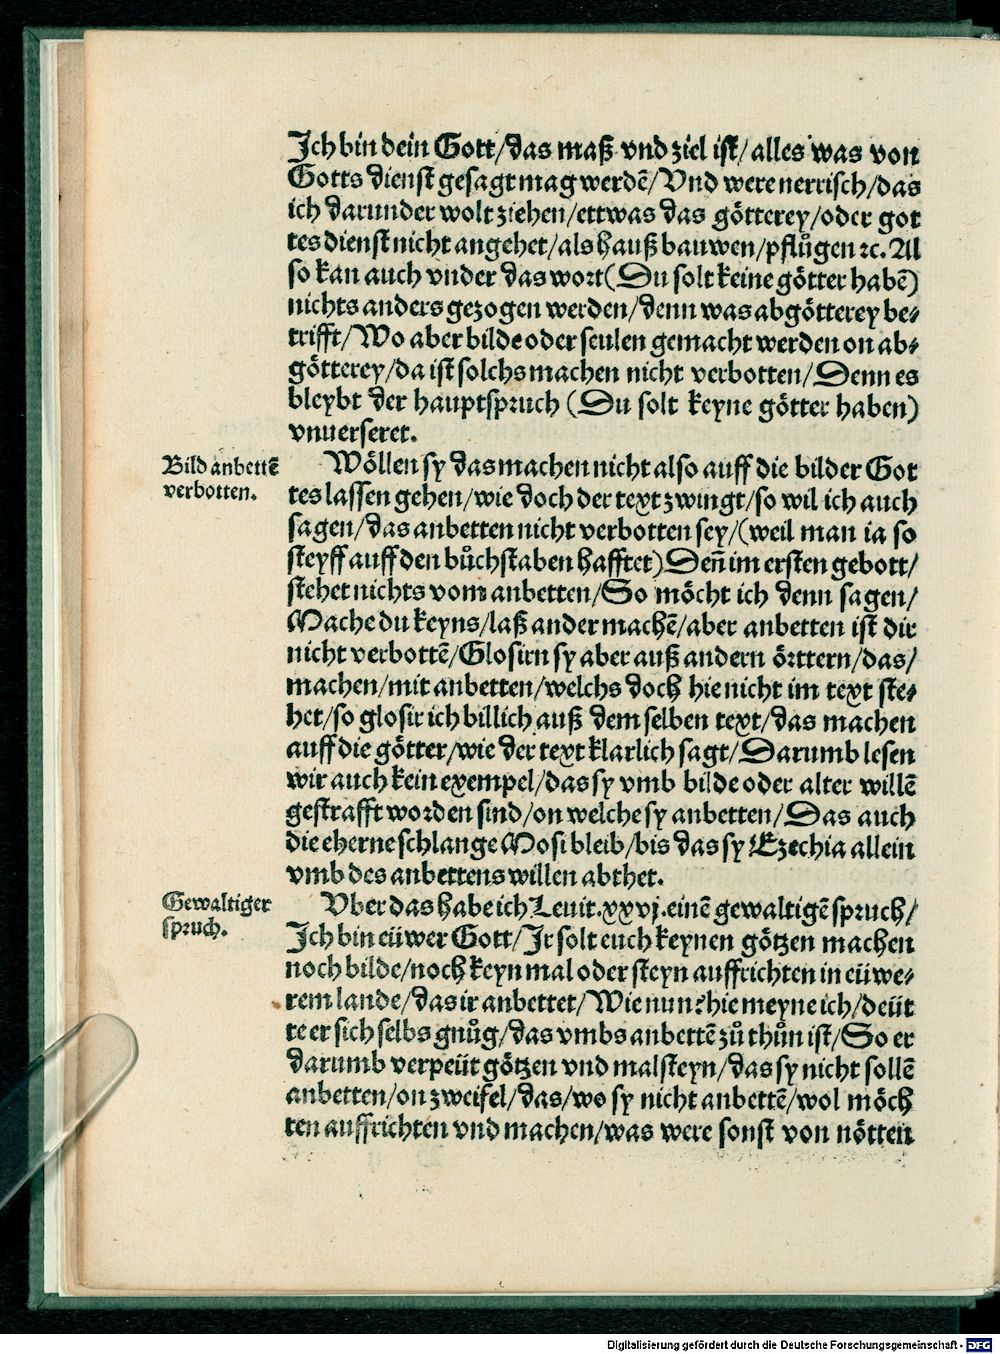 Ich bin dein Gott/das maß vnd ziel ist/alles was von
Gotts dienst gesagt mag werdē/Vnd were nerrisch/das
ich darunder wolt ziehen/ettwas das götterey/oder got
tes dienst nicht angehet/als hauß bauwen/pflůgen ꝛc. Al
so kan auch vnder das wort(Du solt keine götter habē)
nichts anders gezogen werden/denn was abgötterey be⸗
trifft/Wo aber bilde oder seulen gemacht werden on ab⸗
götterey/da ist solchs machen nicht verbotten/Denn es
bleybt der hauptspruch (Du solt keyne götter haben)
vnuerseret.
Bild anbettē
verbotten.
Wöllen sy das machen nicht also auff die bilder Got
tes lassen gehen/wie doch der text zwingt/so wil ich auch
sagen/das anbetten nicht verbotten sey/(weil man ia so
steyff auff den bůchstaben hafftet)Deñ im ersten gebott/
stehet nichts vom anbetten/So möcht ich denn sagen/
Mache du keyns/laß ander machē/aber anbetten ist dir
nicht verbottē/Glosirn sy aber auß andern örttern/das/
machen/mit anbetten/welchs doch hie nicht im text ste⸗
het/so glosir ich billich auß dem selben text/das machen
auff die götter/wie der text klarlich sagt/Darumb lesen
wir auch kein exempel/das sy vmb bilde oder alter willē
gestrafft worden sind/on welche sy anbetten/Das auch
die eherne schlange Mosi bleib/bis das sy Ezechia allein
vmb des anbettens willen abthet.
Gewaltiger
spruch.
Vber das habe ich Leuit.xxvj.einē gewaltigē spruch/
Ich bin eüwer Gott/Ir solt euch keynen götzen machen
noch bilde/noch keyn mal oder steyn auffrichten in eüwe⸗
rem lande/das ir anbettet/Wie nun?hie meyne ich/deüt
te er sich selbs gnůg/das vmbs anbettē zů thůn ist/So er
darumb verpeüt götzen vnd malsteyn/das sy nicht sollē
anbetten/on zweifel/das/wo sy nicht anbettē/wol möch
ten auffrichten vnd machen/was were sonst von nötten
Digitalisierung gefördert durch die Deutsche Forschungsgemeinschaft - DFG